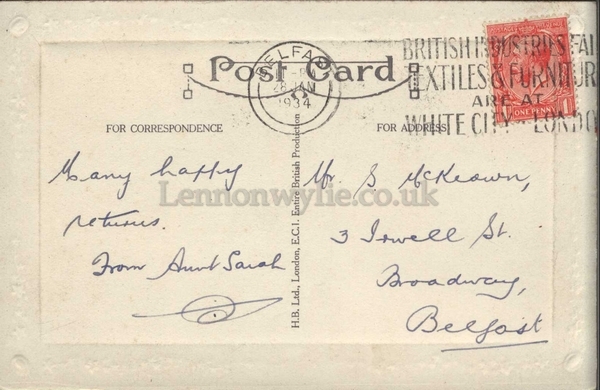 Post Card
BELFAST
26 JAN
1934
BRITISH INDUSTRIES FAI
TEXTILES & FURNITUR
ARE AT
WHITE CITY LONDO
ONE PENNY
FOR CORRESPONDENCE
FOR ADDRESS
Many happy
returns.
From Aunt Sarah
H.B. Ltd., London, E.C.1. Entire British Production
Mr. S. McKeown,
3 Irwell St.
Broadway,
Belfast
Lennonwylie.co.uk